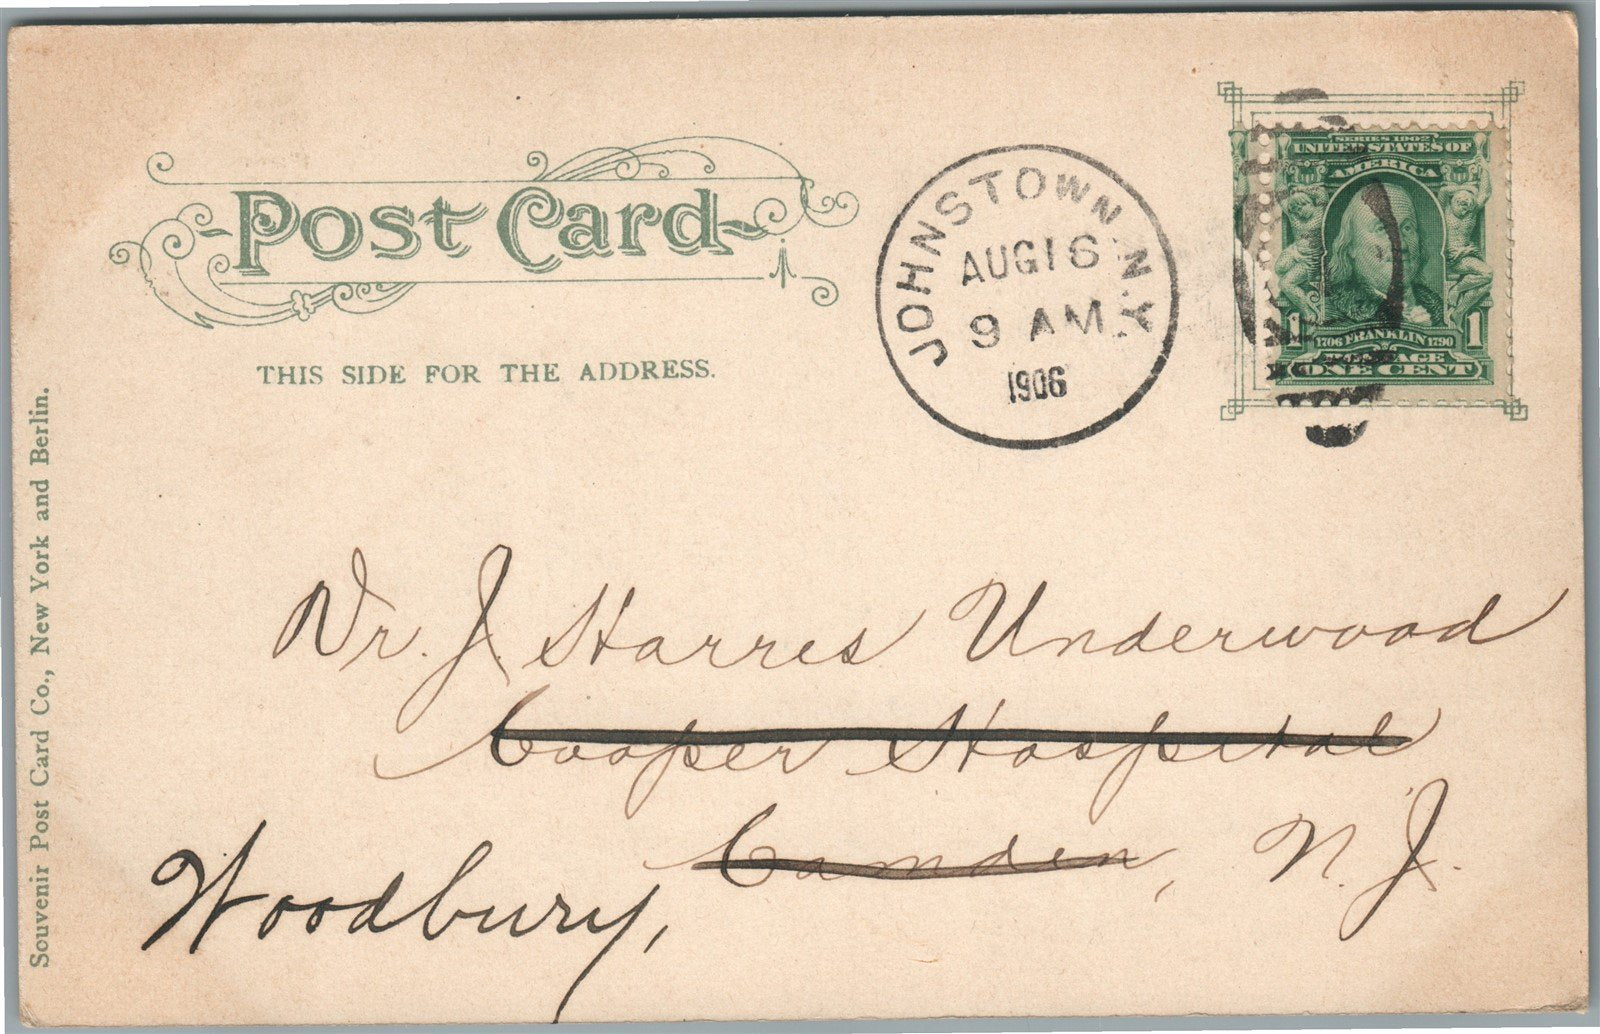 Post Card
THIS SIDE FOR THE ADDRESS.
JOHNSTOWN, N.Y.
AUG 16
9 AM
1906
SERIES 1902
UNITED STATES OF
AMERICA
1706 FRANKLIN 1790
1 1
POSTAGE
ONE CENT
Dr. J. Harres Underwood
Cooper Hospital
Camden, N.J.
Woodbury,
Souvenir Post Card Co., New York and Berlin.